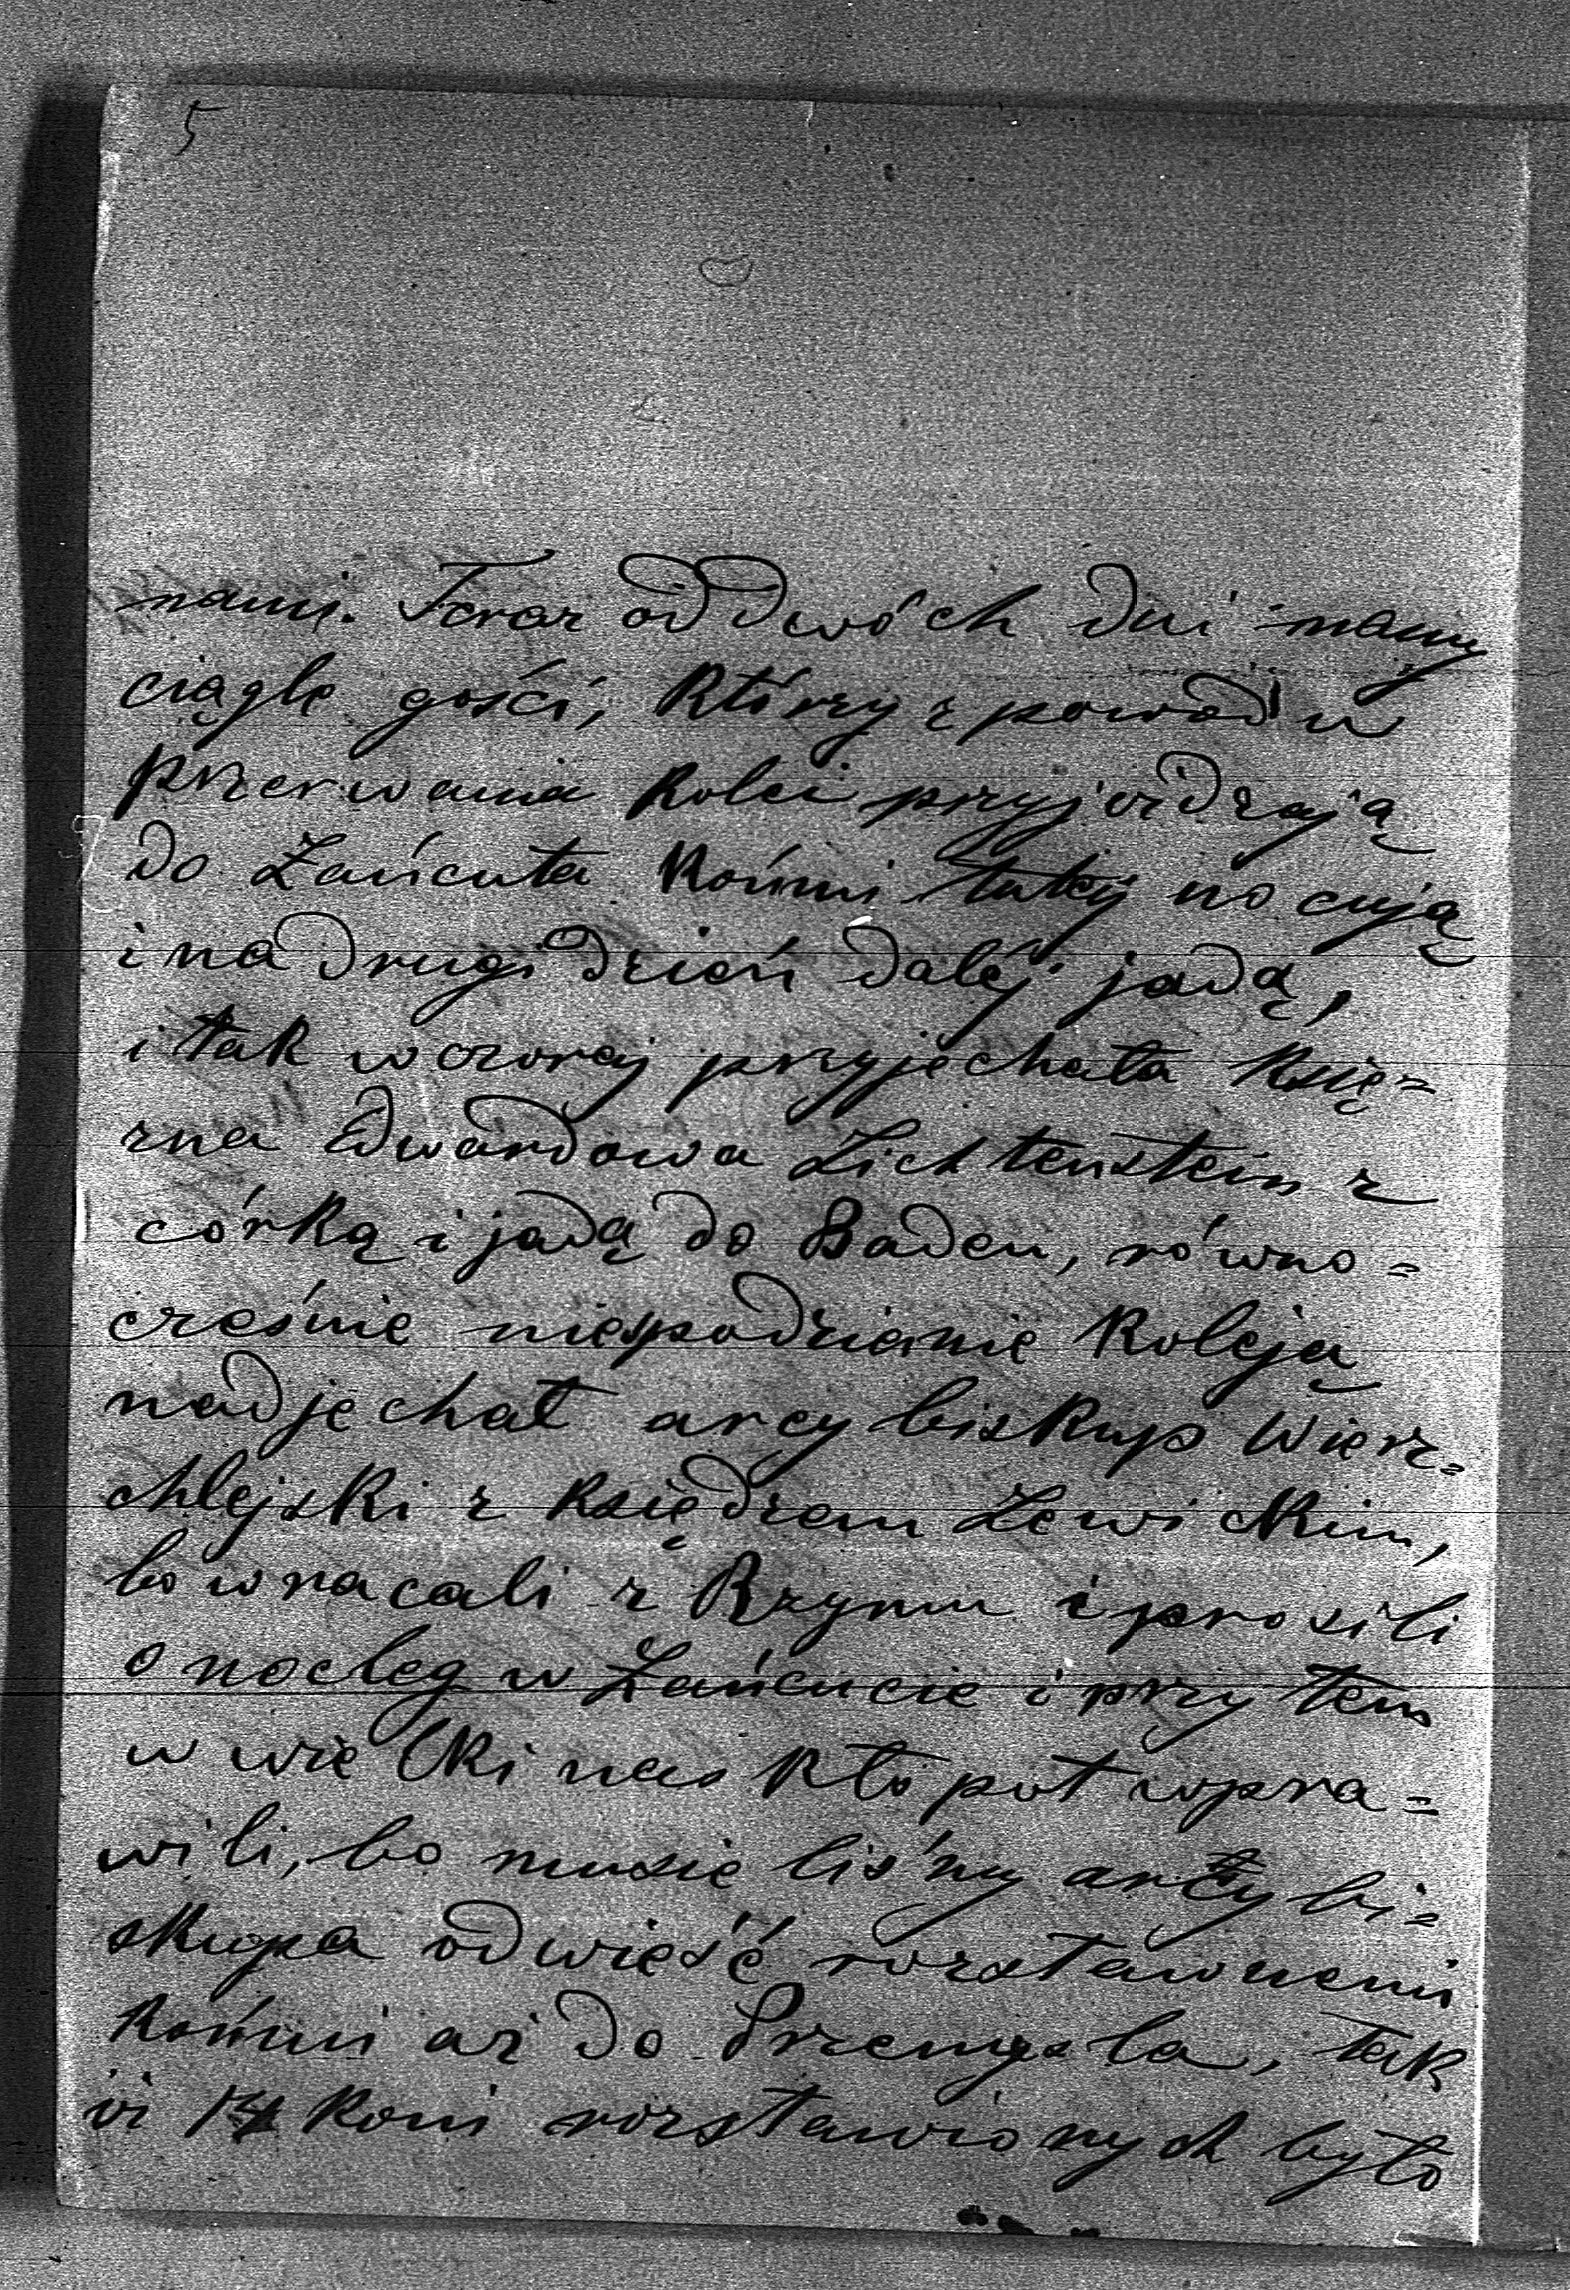 5
nami. Teraz od dwóch dni mamy
ciągle gości, którzy z powodu
przerwania kolei przyjeżdżają
do Łańcuta końmi tutej nocują
i na drugi dzień daléj jadą,
i tak wczoraj przyjechała Księ=
żna Edwardowa Lichtenstein z
córką i jadą do Baden, równo=
cześnie niespodzianie koleją
nadjechał arcybiskup Wierz=
chlejski z księdzem Lewickim,
bo wracali z Rzymu i prosili
o nocleg w Łańcucie i przy tem
w wielki nas kłopot wpra=
wili, bo musieliśmy arcybi=
skupa odwieść rozstawnemi
końmi aż do Przemyśla, tak
iż 14 koni rozstawionych było